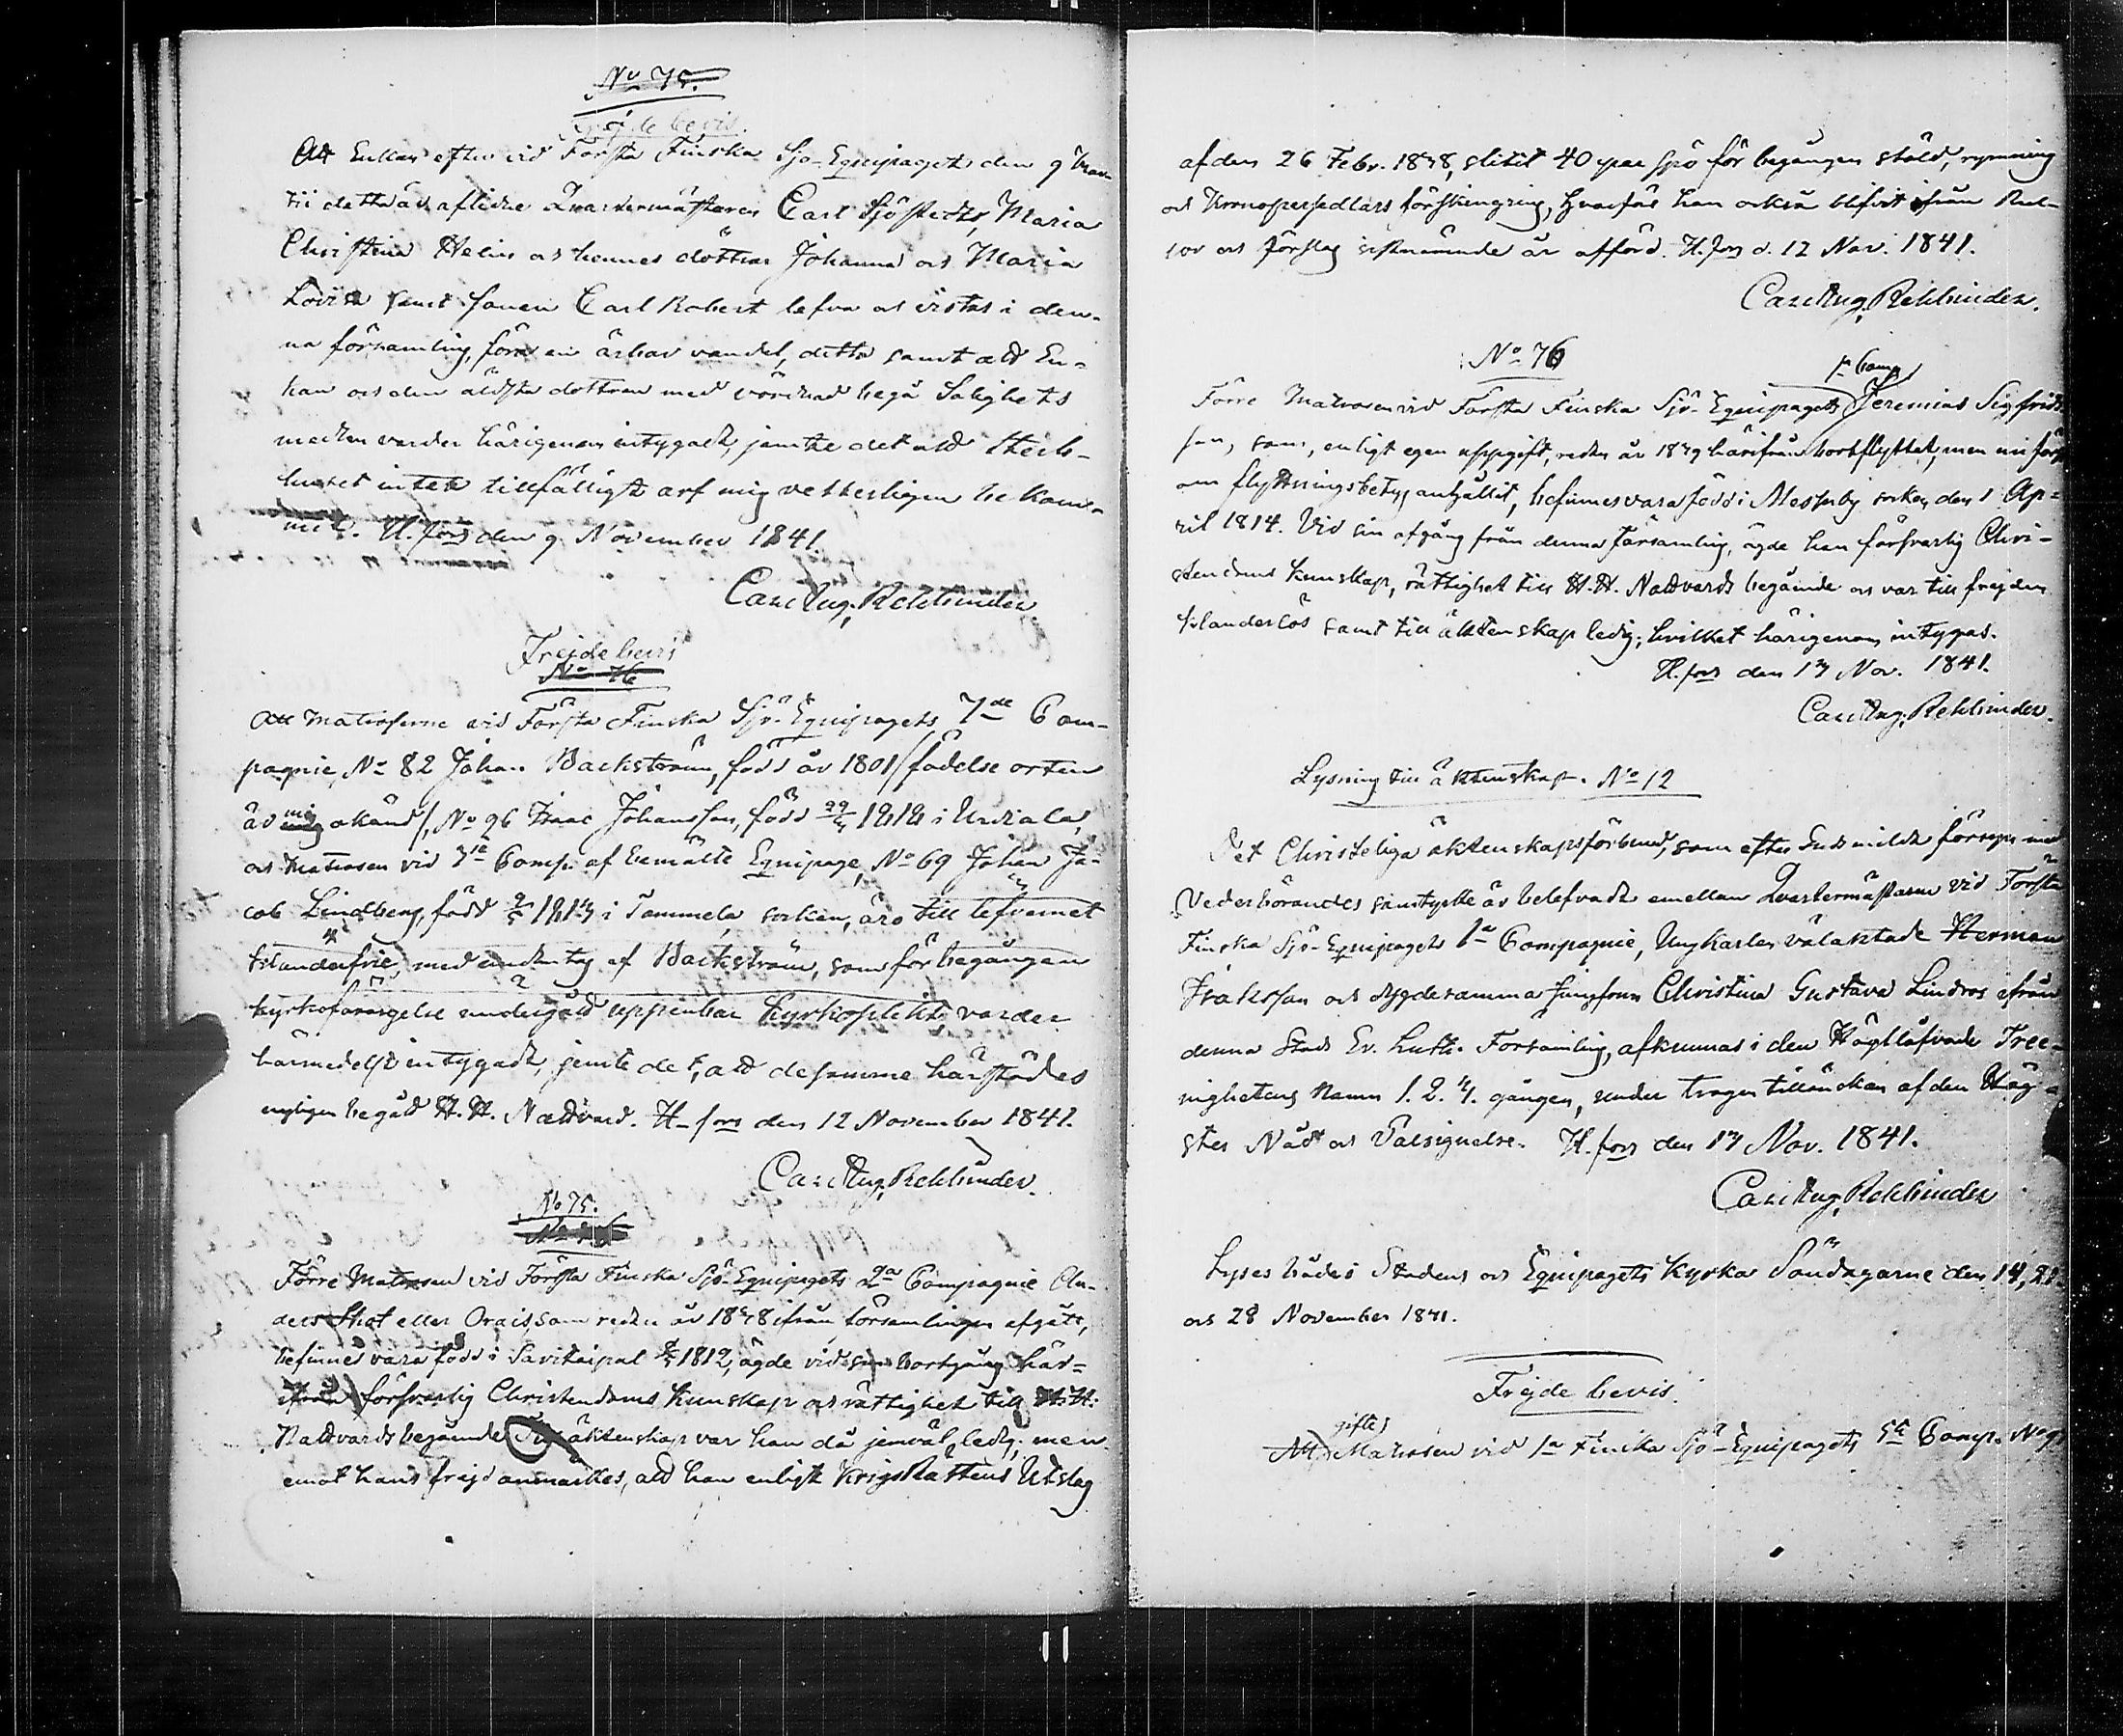 No 75.
Frejdebevis.
Att Enkan efter vid Första Finska Sjö-Equipaget den 9 Mar-
tii detta år aflidne Qvartermästaren Carl Sjöstedt, Maria
Christina Helin och hennes döttrar Johanna och Maria
Lovisa samt sonen Carl Robert lefva och vistas i den-
na församling, föra en ärbar vandel, detta samt att En-
kan och den äldsta dottren med vördnad begå Salighets
medlen varder härigenom intygadt, jemte det att Sterb-
huset intet tillfälligt arf mig vetterligen bekom-
mit. H.fors den 9 November 1841.
Carl Aug. Rehbinder
Frejdebevis
No 76
Att Matroserne vid Första Finska Sjö-Equipagets 7de Com-
pagnie, No 82 Johan Backström, född år 1801 /födelseorten
är mig okänd/, No 96 Isaac Johansson, född 1818 i Urdiala,
och Matrosen vid 3ie Comp. af bemälte Equipage, No 69 Johan Ja-
cob Lindberg, född 1813 i Tammela socken, äro till lefvernet
klanderfrie, med undantag af Backström, som för begången
kyrkoförargelse undergått uppenbar Kyrkoplikt, varder
härmedelst intygadt, jemte det, att desamme härstädes
nyligen begått H.H. Nattvard. H-fors den 12 November 1841.
Carl Aug. Rehbinder.
No 75.
No 76
Förre Matrosen vid Första Finska Sjö-Equipagets 2a Compagnie An-
ders Skot eller Orais, som redan år 1838 ifrån församlingen afgått,
befinnes vara född i Savitaipal 1812, ägde vid sin bortgång här-
ifrån försvarlig Christendoms kunskap och rättighet till H.H.
Nattvards begående Till äktenskap var han då jemväl ledig; men
emot hans frejd anmärkes, att han enligt KrigsRättens Utslag
af den 26 Febr. 1838, slitit 40 par spö för begången stöld, rymning
och Kronopersedlars förskingring, hvarföre han också blifvit ifrån Rul-
lor och förslag sistnämnde år afförd. H.fors d. 12 Nov. 1841.
Carl Aug. Rehbinder.
No 76
1a Comp
Förre Matrosen vid Första Finska Sjö-Equipagets Jeremias Sigfrids-
son, som, enligt egen uppgift, redan år 1839 härifrån bortflyttat, men nu först
om flyttningsbetyg anhållit, befinnes vara född i Messuby socken den 1 Ap-
ril 1814. Vid sin afgång från denna församling, ägde han försvarlig Chri-
stendoms kunskap, rättighet till H.H. Nattvards begående och var till frejden
klanderlös samt till äktenskap ledig; hvilket härigenom intygas.
H.fors den 13 Nov. 1841.
Carl Aug. Rehbinder.
Lysning till äktenskap. No 12
Det Christeliga äktenskapsförbund, som efter Guds milda försyn med
Vederbörandes samtycke är belefvadt emellan Qvartermästaren vid Första
Finska Sjö-Equipagets 1a Compagnie, Ungkarlen välaktade Herman
Isaksson och dygdesamma Jungfrun Christina Gustava Lindros ifrån
denna Stads Ev. Luth. Församling, afkunnas i den Höglofvade Tree-
nighetens Namn 1. 2. 3. gången, under trogen tillönskan af den Hög-
stes Nåd och Välsignelse. H.fors den 13 Nov. 1841.
Carl Aug. Rehbinder
Lyses både i Stadens och Equipagets Kyrka Söndagarne den 14, 21
och 28 November 1841.
Frejdebevis.
gifte
Att Matrosen vid 1a Finska Sjö-Equipagets 5te Comp. No